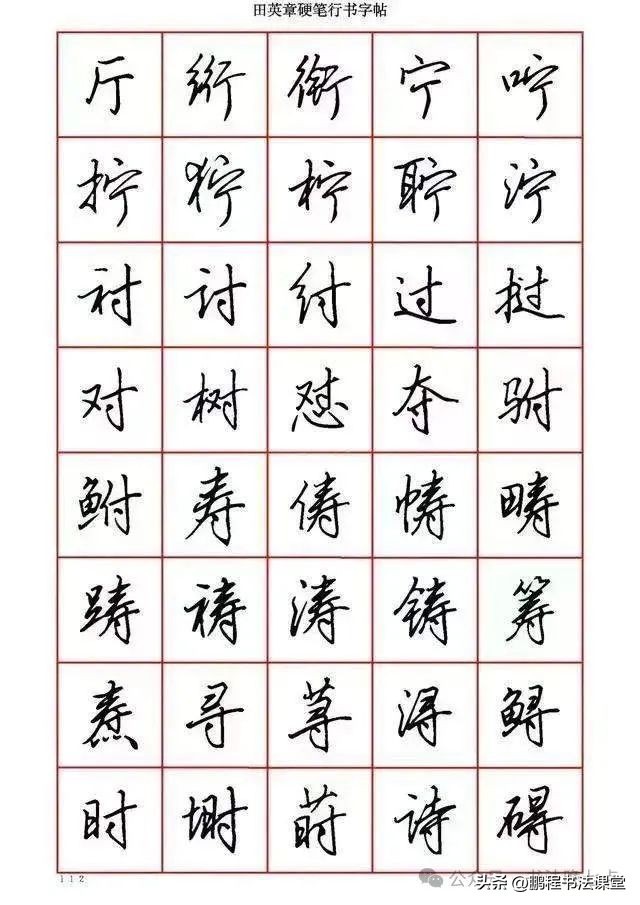 田英章硬笔行书字帖
厅 绗 衔 宁 咛
拧 狞 柠 聍 泞
衬 讨 纣 过 挝
对 树 怼 夺 驸
鲋 寿 俦 帱 畴
踌 祷 涛 铸 筹
焘 寻 荨 浔 鲟
时 埘 莳 诗 碍
112
头条@鹏程书法课堂